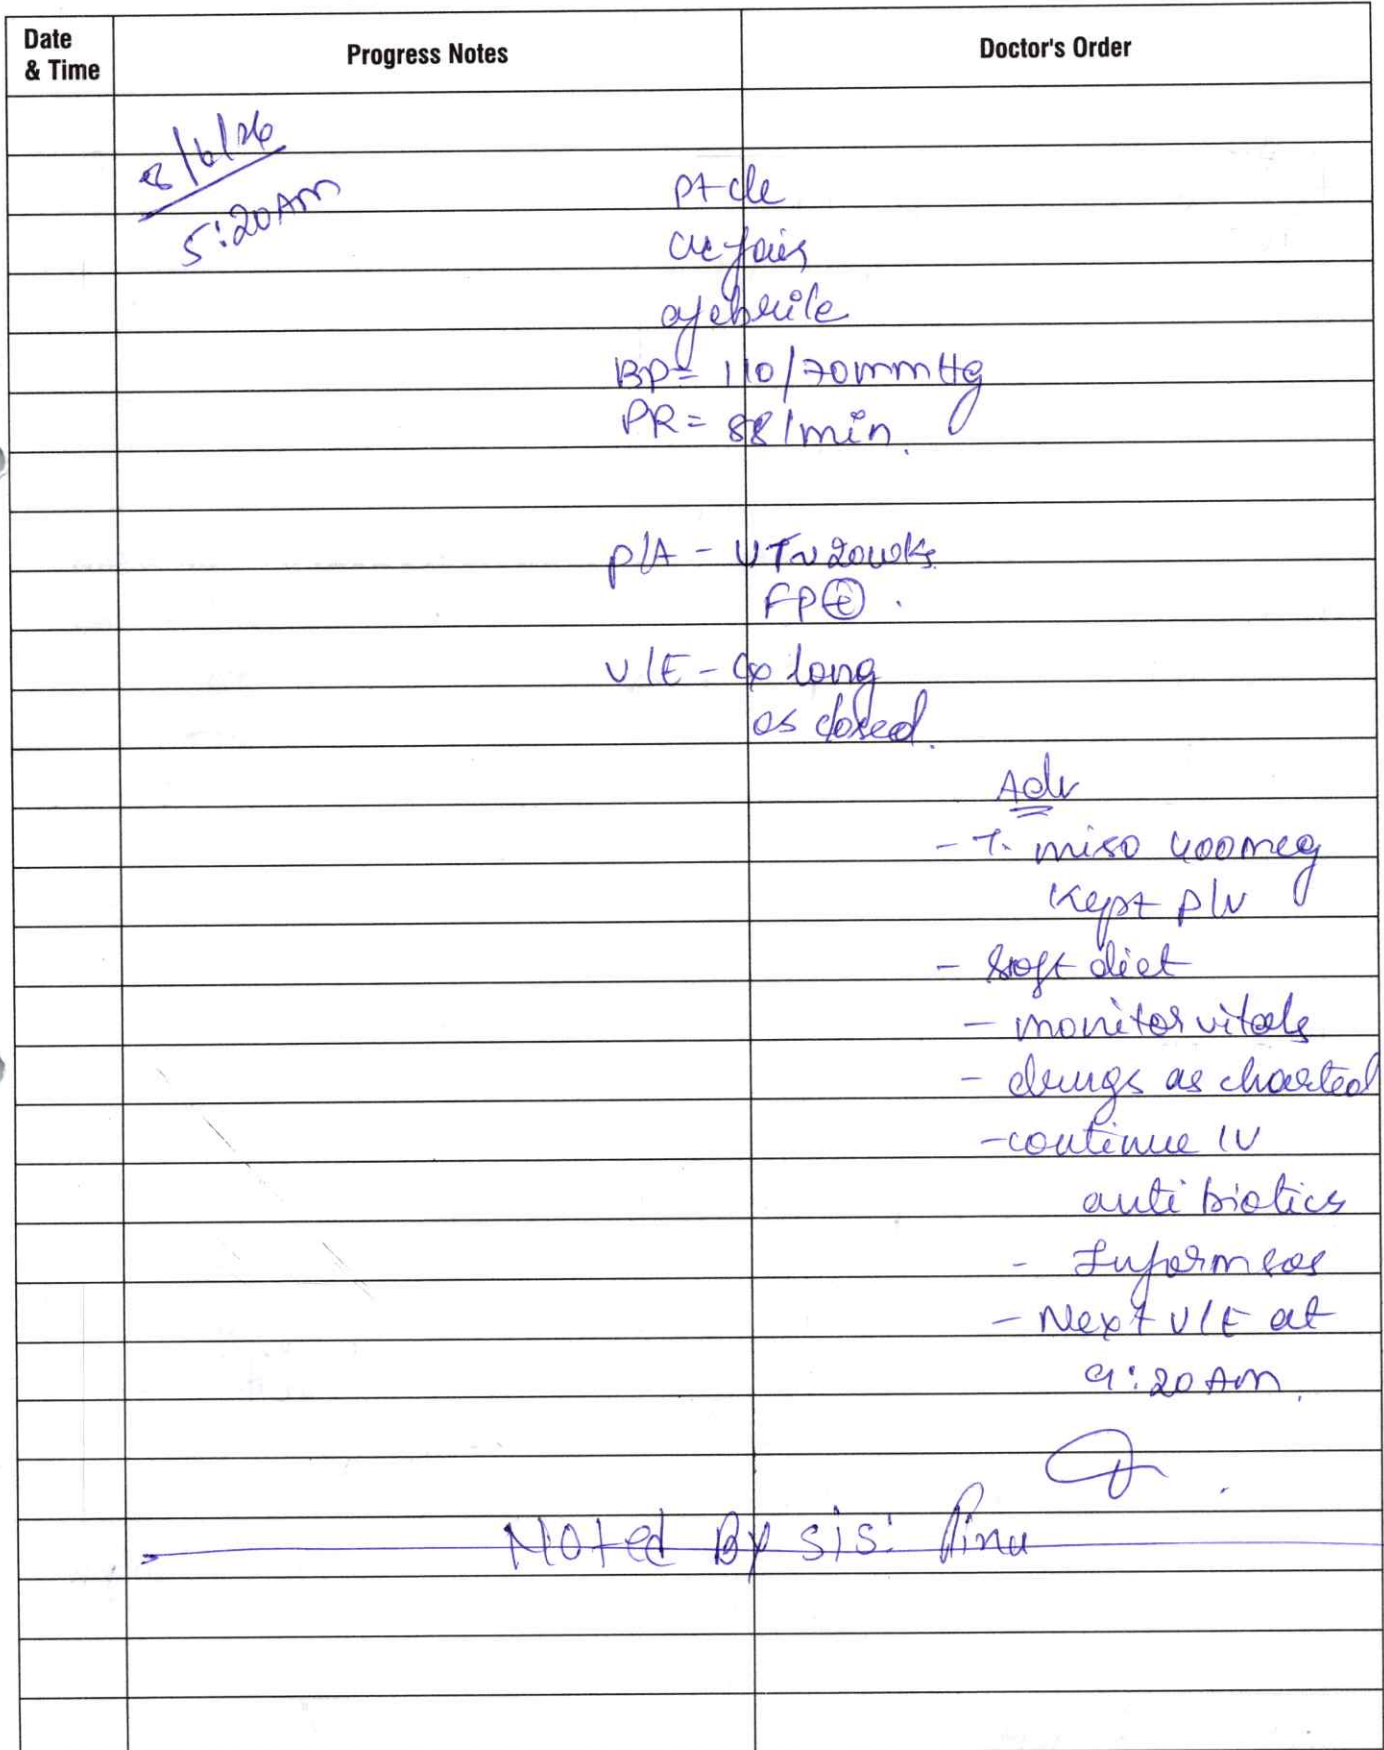 Date & Time Progress Notes Doctor's Order
8/6/26
5:20 Am
pt c/e
GC fair
afebrile
BP = 110/70mmHg
PR = 88/min.
P/A - UT ~ 20wks
FP ⊕ .
V/E - Cx long
os closed.
Adv
- T. miso 400mcg
kept p/v
- soft diet
- monitor vitals
- drugs as charted
- continue IV
antibiotics
- Inform sos
- Next V/E at
9:20 Am.
Noted By sis: